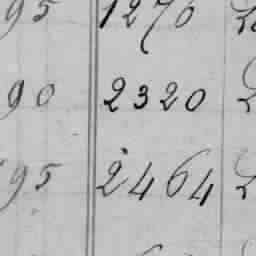 95 1270
90 2320
95 2464